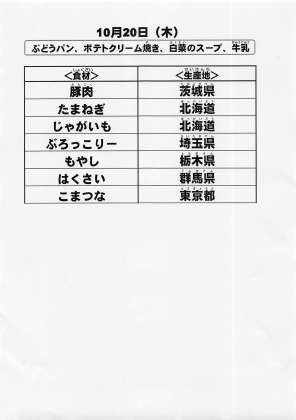 10月20日（木）
ぶどうパン、ポテトクリーム焼き、白菜のスープ、牛乳
＜食材＞ ＜生産地＞
豚肉 茨城県
たまねぎ 北海道
じゃがいも 北海道
ぶろっこりー 埼玉県
もやし 栃木県
はくさい 群馬県
こまつな 東京都